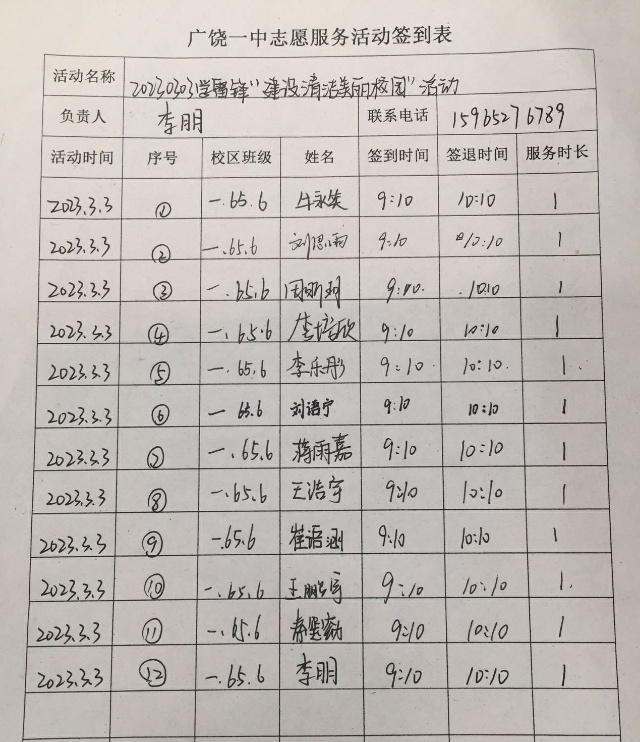 广饶一中志愿服务活动签到表
活动名称 20230303学雷锋"建设清洁美丽校园"活动
负责人 李明 联系电话 15965276789
活动时间 序号 校区班级 姓名 签到时间 签退时间 服务时长
2023.3.3 ① 一.65.6 牛永笑 9:10 10:10 1
2023.3.3 ② 一.65.6 刘思雨 9:10 10:10 1
2023.3.3 ③ 一.65.6 9:10 10:10 1
2023.3.3 ④ 一.65.6 9:10 10:10 1
2023.3.3 ⑤ 一.65.6 李乐彤 9:10 10:10 1
2023.3.3 ⑥ 一 65.6 刘语宁 9:10 10:10 1
2023.3.3 ⑦ 一.65.6 蒋雨嘉 9:10 10:10 1
2023.3.3 ⑧ 一.65.6 王浩宇 9:10 10:10 1
2023.3.3 ⑨ 一.65.6 崔语涵 9:10 10:10 1
2023.3.3 ⑩ 一.65.6 王鹏宇 9:10 10:10 1
2023.3.3 ⑪ 一.65.6 9:10 10:10 1
2023.3.3 ⑫ 一.65.6 李明 9:10 10:10 1